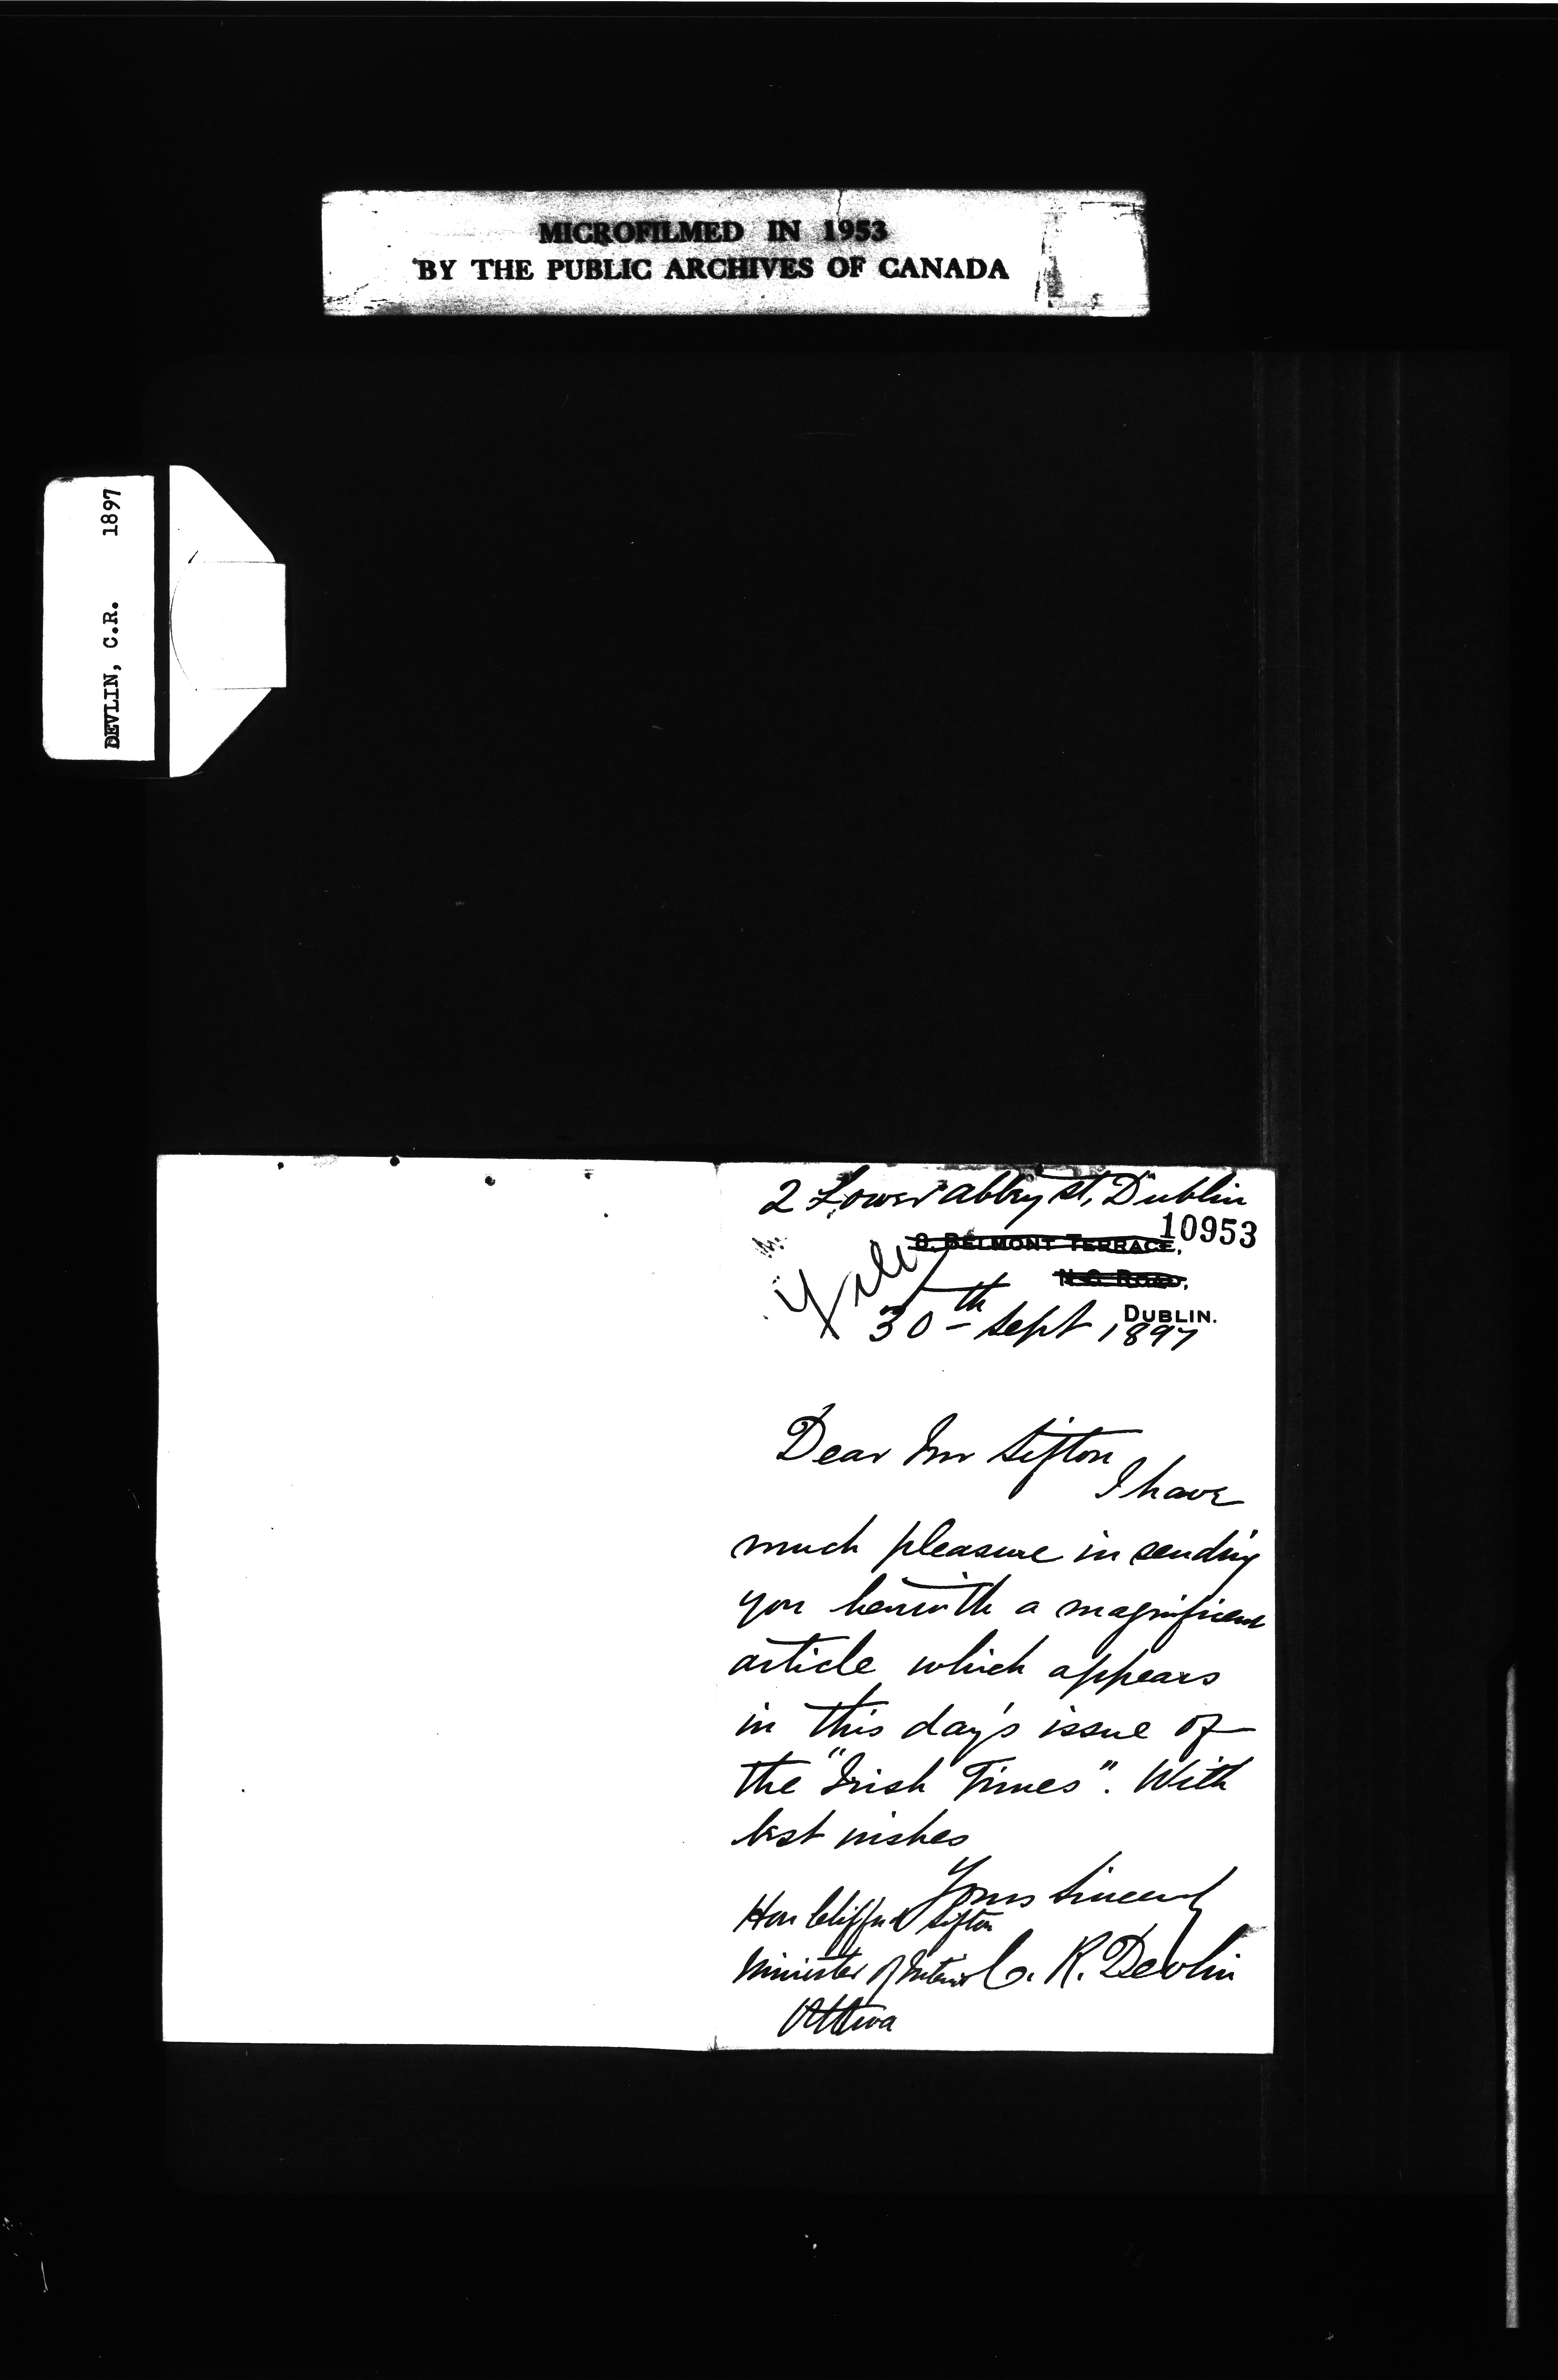 MICROFILMED IN 1953
BY THE PUBLIC ARCHIVES OF CANADA
DEVLIN, C.R. 1897
2 Lower Abbey St, Dublin
10953
BELMONT TERRACE,
N.C. ROAD,
DUBLIN.
30th Sept 1897
Dear Mr Sifton
I have
much pleasure in sending
you herewith a magnificent
article which appears
in this day's issue of
the "Irish Times". With
best wishes
Yours Sincerely
C. R. Devlin
Hon Clifford Sifton
Minister of Interior
Ottawa